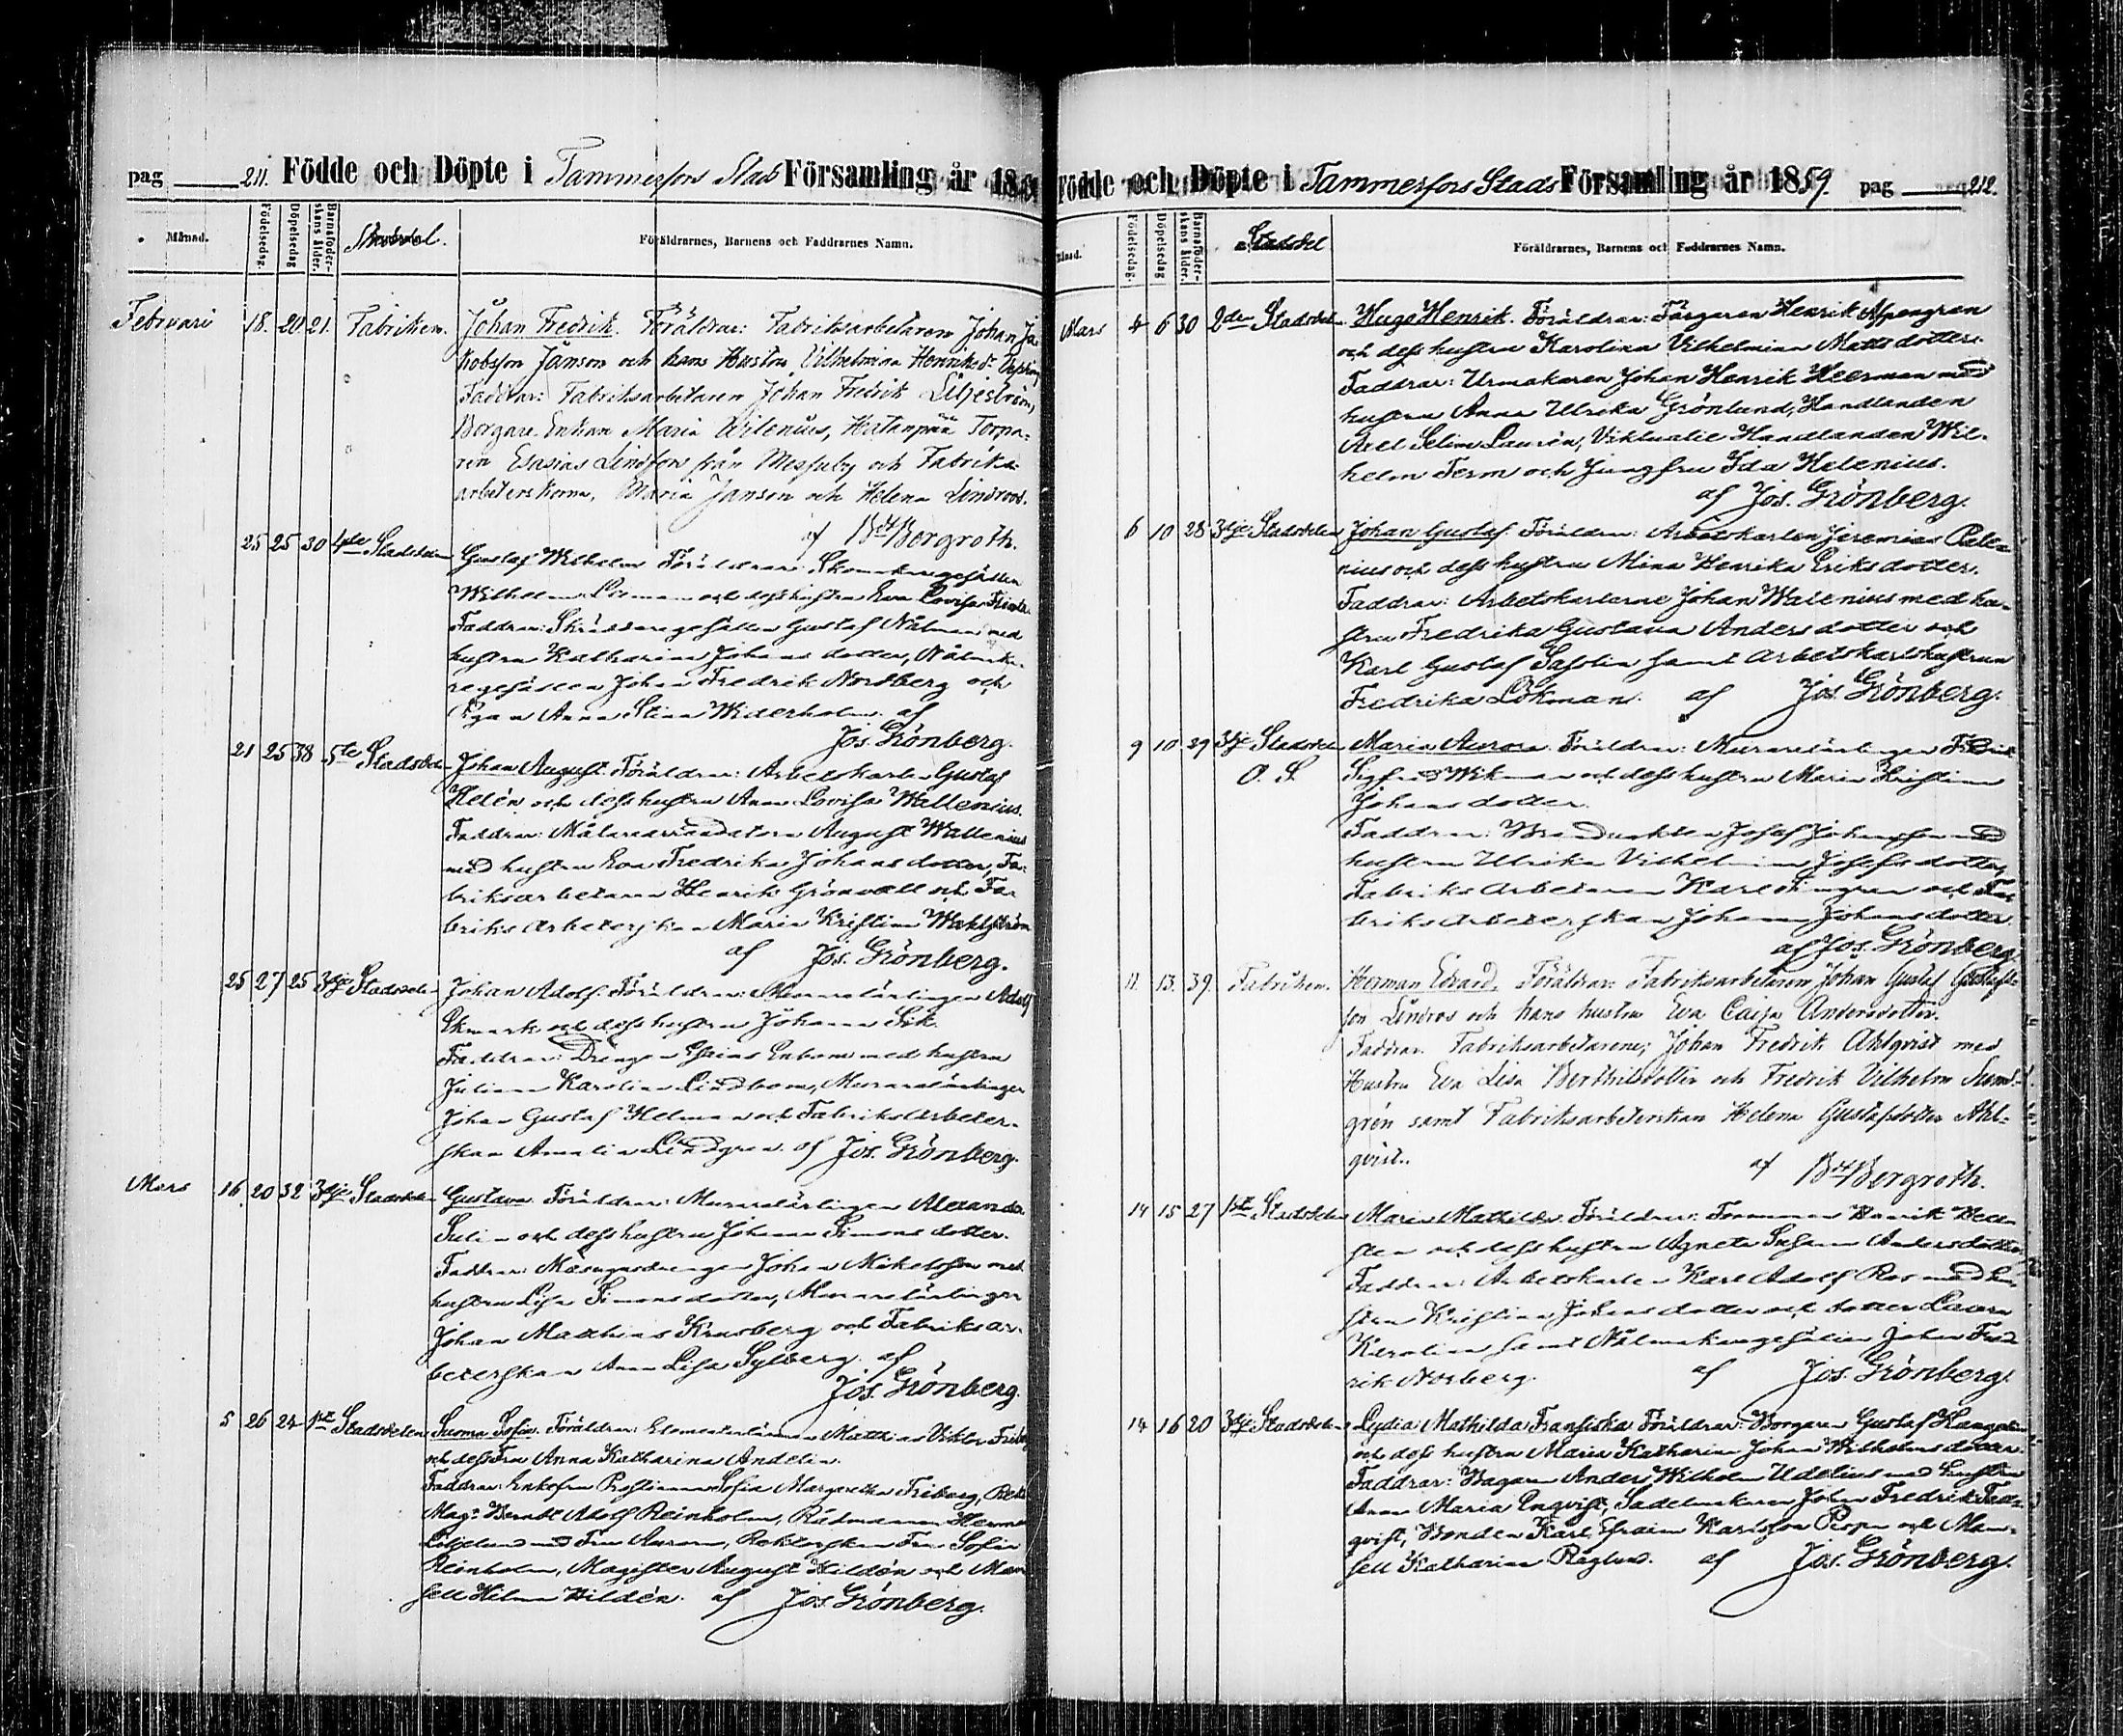 pag 211. Födde och Döpte i Tammerfors Stads Församling år 1859
Månad.
Födelsedag.
Döpelsedag
Barnaföder-
skans ålder.
Stadsdel.
Föräldrarnes, Barnens och Faddrarnes Namn.
Februari 18. 20 21. Fabriken. Johan Fredrik. Föräldrar: Fabriksarbetaren Johan Ja-
kobsson Janson och hans Hustru Vilhelmina Henriksdr
Faddrar: Fabriksarbetaren Johan Fredrik Liljeström,
Borgare Enkan Maria Wilenius, Hatanpää Torpa-
ren Esasias Lindfors från Messuby och Fabriks-
arbeterskorna, Maria Janson och Helena Lindroos.
af Bergroth.
25 25 30 4de Stadsdelen Gustaf Wilhelm Föräldrar: Skomakaregesällen
Wilhelm och dess hustru Eva Lovisa
Faddrar: Skräddaregesällen Gustaf Nålman med
hustru Katharina Johansdotter, Nålmaka-
regesällen Johan Fredrik Nordberg och
Pigan Anna Stina Widerholm. af
Jos. Grönberg.
21 25 38 5te Stadsdelen Johan August. Föräldrar: Arbetskarlen Gustaf
Helén och dess hustru Anna Lovisa Wallenius.
Faddrar: August Wallenius
med hustru Eva Fredrika Johansdotter, Fa-
briksarbetaren Henrik Grönvall och Fa-
briksarbeterskan Maria Kristina Wahlström
af Jos. Grönberg.
25 27 25 3dje Stadsdelen Johan Adolf. Föräldrar: Murarelärlingen Adolf
Ekmark och dess hustru Johanna Sik.
Faddrar: Drängen Esaias Enbom med hustru
Juliana Karolina Lindbom, Murarelärlingen
Johan Gustaf Helman och Fabriksarbeter-
skan Amalia Lindgren. af Jos. Grönberg.
Mars 16 20 32 3dje Stadsdelen Gustava. Föräldrar: Murarelärlingen Alexander
Sulin och dess hustru Johanna Simonsdotter.
Faddrar: Masugnsdrengen Johan Mikelsson med
hustru Lisa Simonsdotter, Murarelärlingen
Johan Matthias Krusberg och Fabriksar-
beterskan Anna Lisa Sylberg. af
Jos. Grönberg.
5 26 24 1sta Stadsdelen Sofia. Föräldrar: Matthias Viktor Friberg
och dess Fru Anna Katharina Andelin.
Faddrar: Enkefru Sofia Margaretha Friberg,
Mag: Berndt Adolf Reinholm, Rådmannen
med Fru Aurora, Rektorskan Fru Sofia
Reinholm, Magister August Hildén och Mam-
sell Hilma Hildén. af Jos. Grönberg.
Födde och Döpte i Tammerfors Stads Församling år 1859. pag 212.
Månad.
Födelsedag.
Döpelsedag
Barnaföder-
skans ålder.
Stadsdel
Föräldrarnes, Barnens och Faddrarnes Namn.
Mars 4 6 30 2dra Stadsdelen Hugo Henrik. Föräldrar: Färgaren Henrik Aspengren
och dess hustru Karolina Vilhelmina Mattsdotter.
Faddrar: Urmakaren Johan Henrik Heerman med
hustru Anna Ulrika Grönlund, Handlanden
Axel Selim Laurén, Viktualie Handlanden Wil-
helm Term och Jungfru Ida Helenius.
af Jos. Grönberg.
6 10 28 3dje Stadsdelen Johan Gustaf. Föräldrar: Arbetskarlen Jeremias
nius och dess hustru Mina Henrika Eriksdotter.
Faddrar: Arbetskarlarne Johan Wallenius med hu-
stru Fredrika Gustava Andersdotter och
Karl Gustaf Safolin samt arbetskarlshustrun
Fredrika Lökman. af Jos. Grönberg.
9 10 29 3dje Stadsdelen Maria Aurora. Föräldrar: Murarelärlingen Fredrik
O. S. Sigfrid Wikman och dess hustru Maria Kristina
Johansdotter.
Faddrar: Brandvakten Josef Johansson med
hustru Ulrika Vilhelmina Josefsdotter,
Fabriksarbetaren Karl och Fa-
briksarbeterskan Johanna Johansdotter.
af Jos. Grönberg.
11. 13. 39. Fabriken. Herman Edvard. Föräldrar: Fabriksarbetaren Johan Gustaf Gustafs-
son Lindros och hans hustru Eva Caisa Andersdotter.
Faddrar: Fabriksarbetarene; Johan Fredrik Ahlqvist med
Hustru Eva Lisa Berthilsdotter och Fredrik Vilhelm
grén samt Fabriksarbeterskan Helena Gustafsdotter Ahl-
qvist. af Bergroth.
14 15 27 1sta Stadsdelen Maria Mathilda. Föräldrar: Formannen Henrik Hell-
sten och dess hustru Agneta Susanna Andersdotter,
Faddrar: Arbetskarlen Karl Adolf Ros med hu-
stru Kristina Johansdotter och dotter Laura
Karolina samt Nålmakaregesällen Johan Fred-
rik Norberg. af Jos. Grönberg.
14 16 20 3dje Stadsdelen Lydia Mathilda Fransiska. Föräldrar: Borgaren Gustaf
och dess hustru Maria Katharina Johan Wilhelmsdotter.
Faddrar: Bagaren Anders Wilhelm Udelius med hustru
Anna Maria Engvist, Sadelmakaren Johan Fredrik
qvist, Bonden Karl Efraim Karlsson och Mam-
sell Katharina Raglund. af Jos. Grönberg.